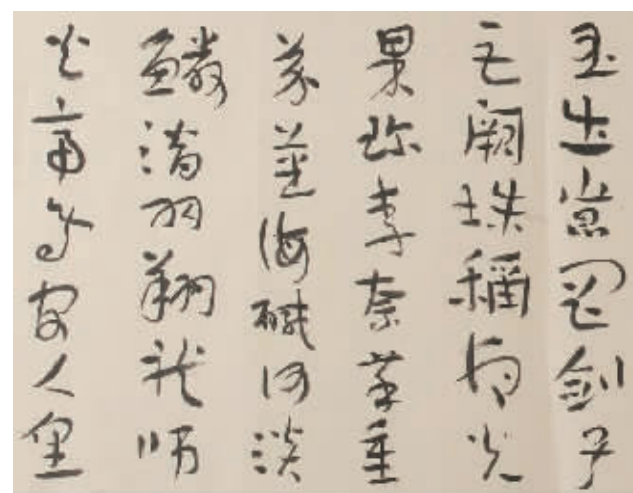 玉出崑岡劍号
巨闕珠稱夜光
果珍李奈菜重
芥薑海鹹河淡
鱗潛羽翔龍師
火帝鳥官人皇